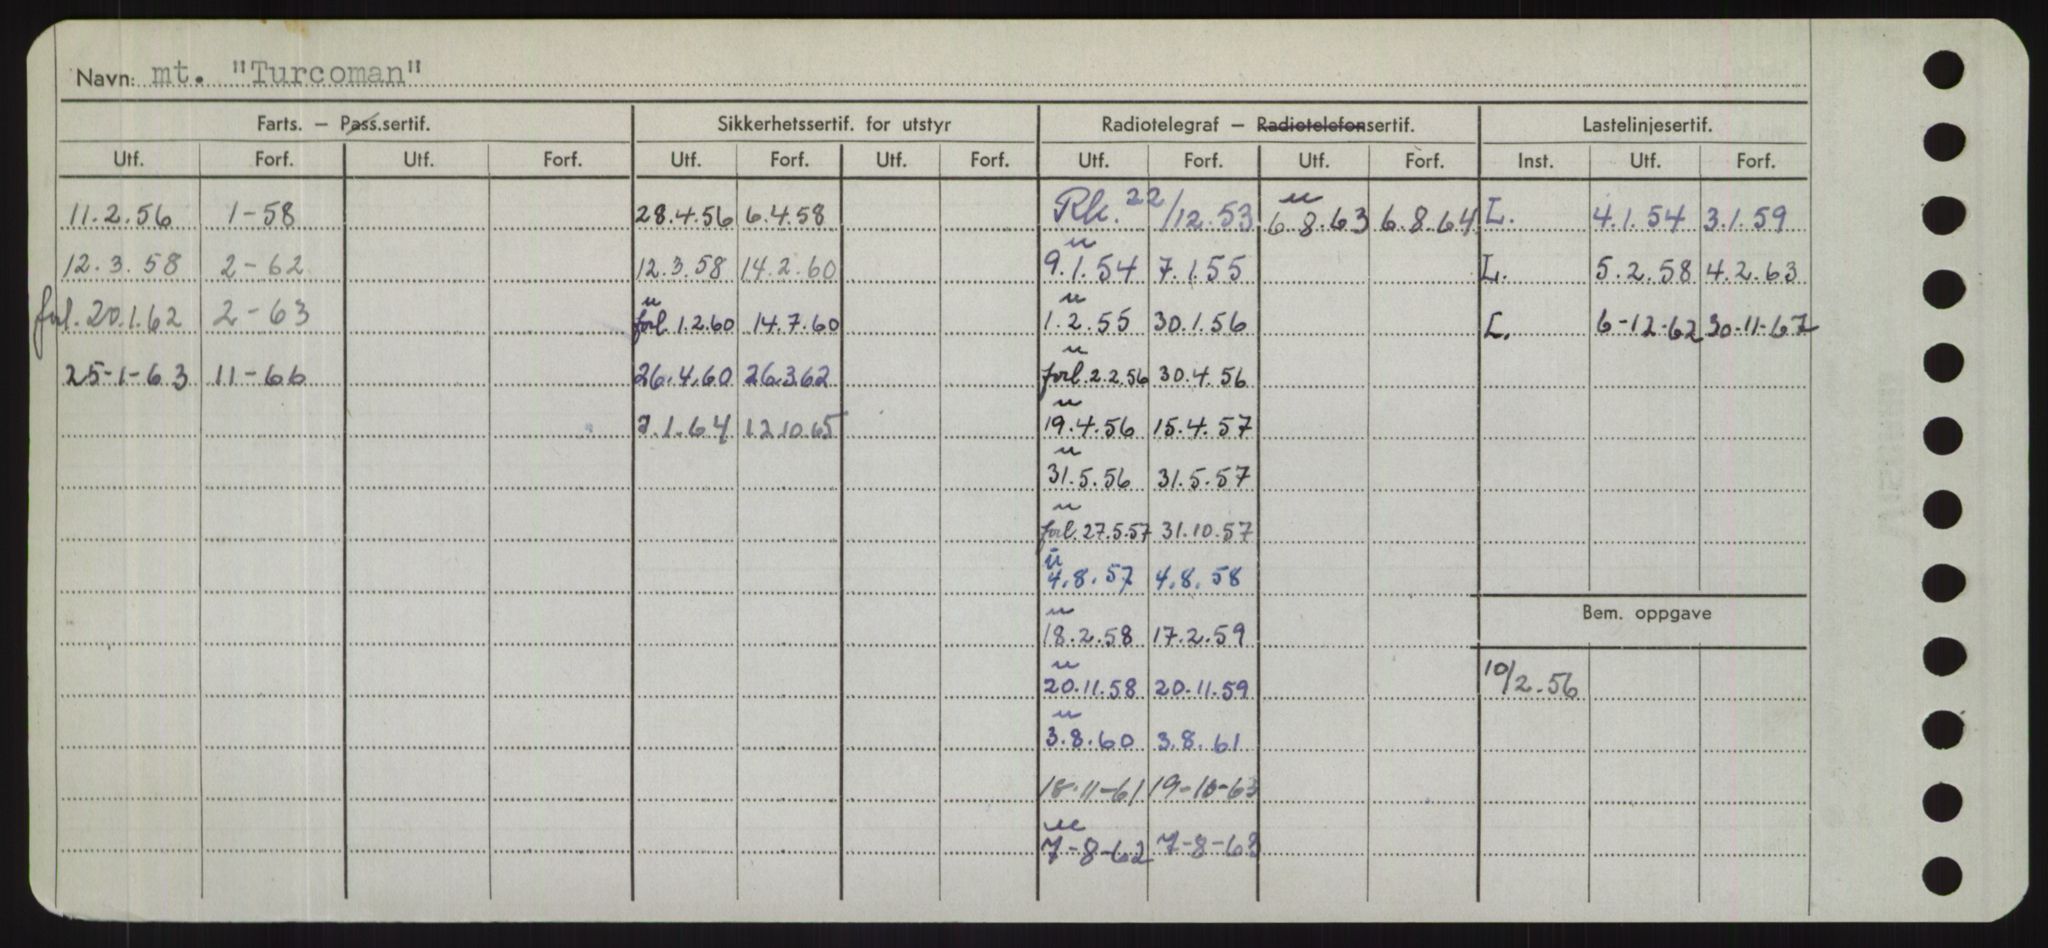 Navn: mt. "Turcoman"
Farts. — Pass.sertif. Sikkerhetssertif. for utstyr Radiotelegraf — Radiotelefonsertif. Lastelinjesertif.
Utf. Forf. Utf. Forf. Utf. Forf. Utf. Forf. Utf. Forf. Utf. Forf. Inst. Utf. Forf.
11.2.56 1-58 28.4.56 6.4.58 Rk. 22/12.53 u 6.8.63 6.8.64 L. 4.1.54 3.1.59
12.3.58 2-62 12.3.58 14.2.60 u 9.1.54 7.1.55 L. 5.2.58 4.2.63
forl. 20.1.62 2-63 u forl. 1.2.60 14.7.60 u 1.2.55 30.1.56 L. 6-12-62 30-11-67
25-1-63 11-66 26.4.60 26.3.62 u forl. 2.2.56 30.4.56
7.1.64 12.10.65 u 19.4.56 15.4.57
u 31.5.56 31.5.57
u forl. 27.5.57 31.10.57
u 4.8.57 4.8.58
Bem. oppgave
u 18.2.58 17.2.59
u 20.11.58 20.11.59 10/2.56
u 3.8.60 3.8.61
18-11-61 19-10-63
u 7-8-62 7-8-63